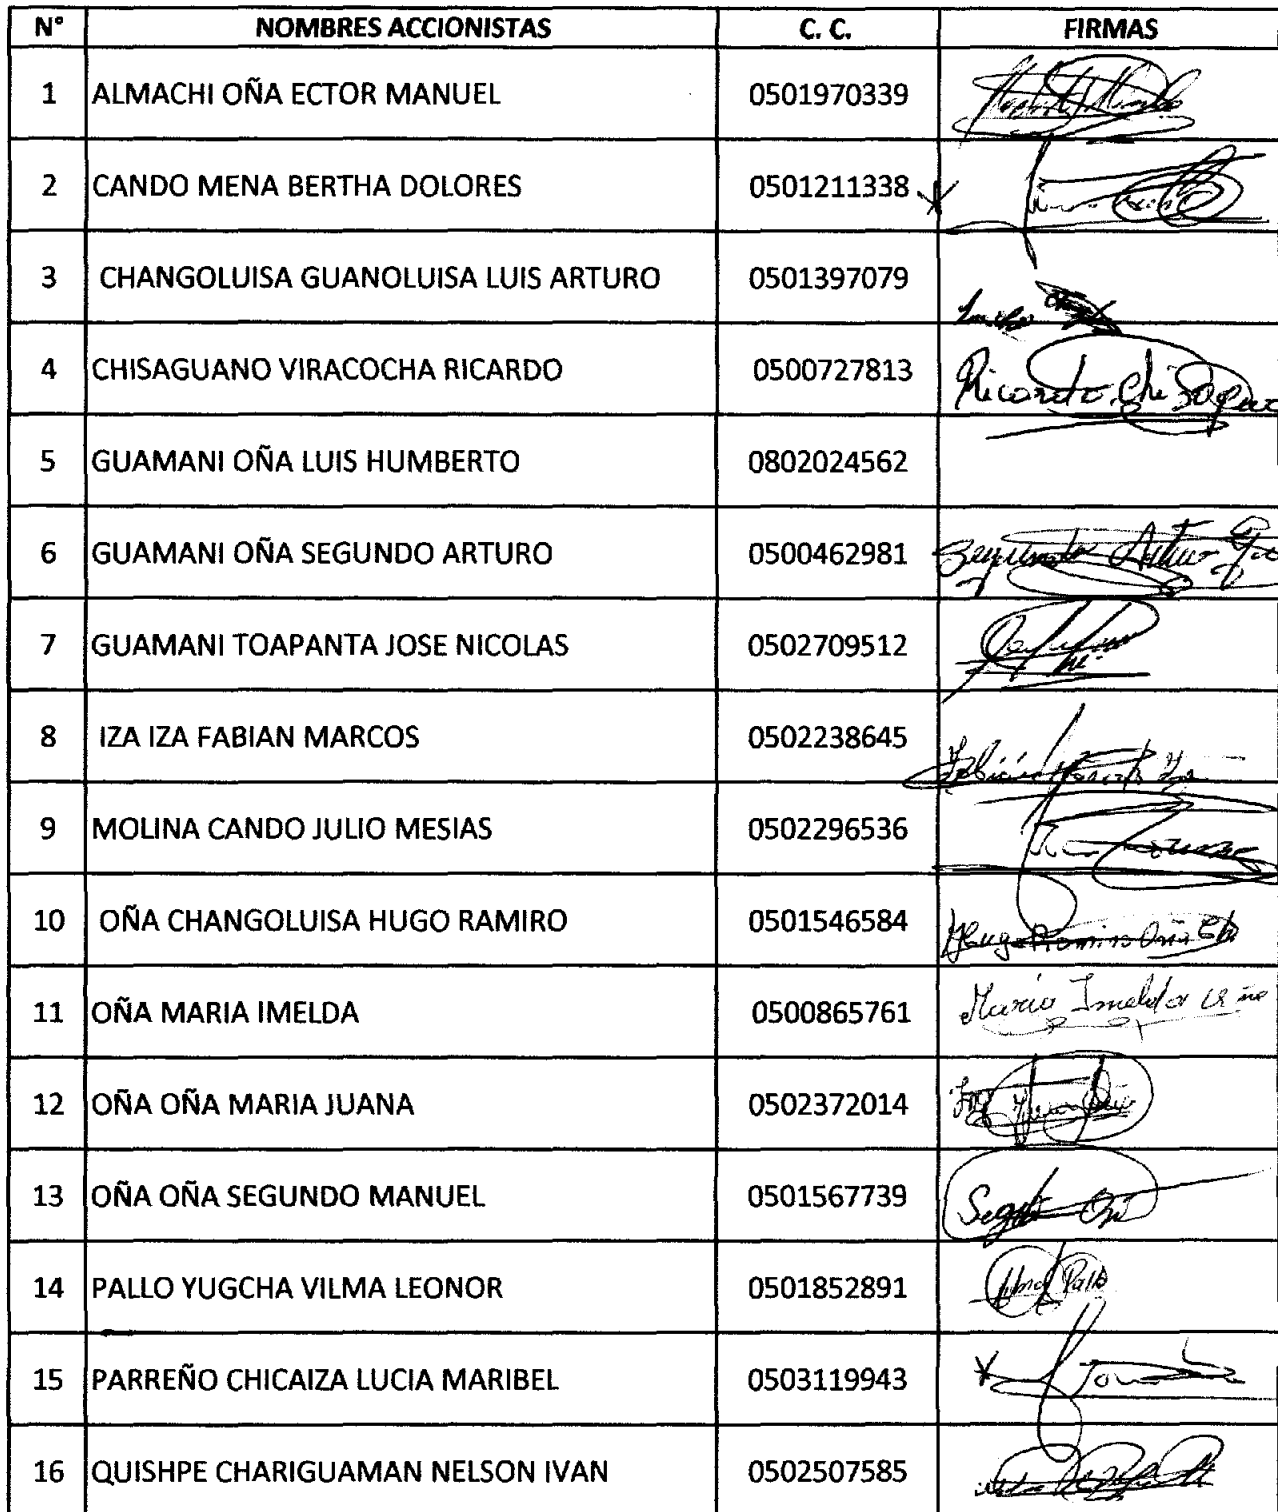 N° NOMBRES ACCIONISTAS C. C. FIRMAS
1 ALMACHI OÑA ECTOR MANUEL 0501970339
2 CANDO MENA BERTHA DOLORES 0501211338
3 CHANGOLUISA GUANOLUISA LUIS ARTURO 0501397079
4 CHISAGUANO VIRACOCHA RICARDO 0500727813 Ricardo
5 GUAMANI OÑA LUIS HUMBERTO 0802024562
6 GUAMANI OÑA SEGUNDO ARTURO 0500462981 Segundo Arturo
7 GUAMANI TOAPANTA JOSE NICOLAS 0502709512
8 IZA IZA FABIAN MARCOS 0502238645
9 MOLINA CANDO JULIO MESIAS 0502296536
10 OÑA CHANGOLUISA HUGO RAMIRO 0501546584 Hugo Ramiro Oña Ch
11 OÑA MARIA IMELDA 0500865761 Maria Imelda Oña
12 OÑA OÑA MARIA JUANA 0502372014
13 OÑA OÑA SEGUNDO MANUEL 0501567739
14 PALLO YUGCHA VILMA LEONOR 0501852891 Pallo
15 PARREÑO CHICAIZA LUCIA MARIBEL 0503119943
16 QUISHPE CHARIGUAMAN NELSON IVAN 0502507585